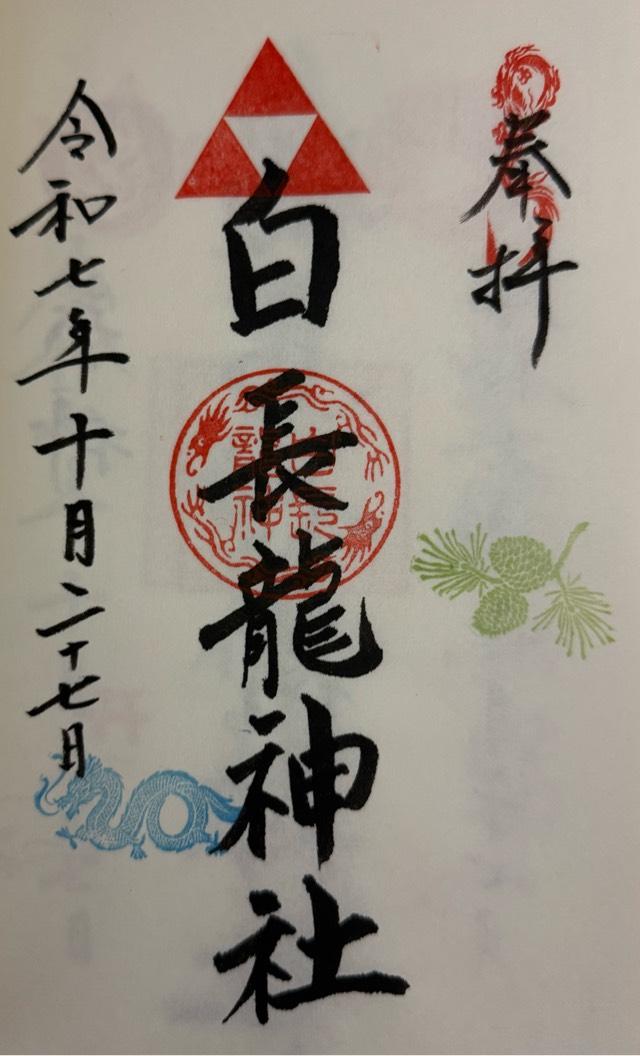 奉拝
白長龍神社
令和七年十月二十七日